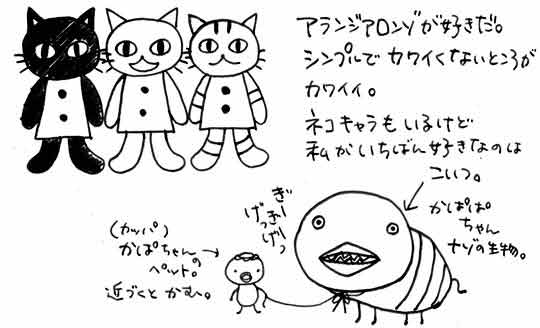 アランジアロンゾが好きだ。
シンプルで カワイくないところが
カワイイ。
ネコキャラも いるけど
私がいちばん好きなのは
こいつ。
かぱぱ
ちゃん
ナゾの生物。
ぎーっ
げっぎー
げーっ
(カッパ)
かぱちゃん
の
ペット。
近づくと かむ。